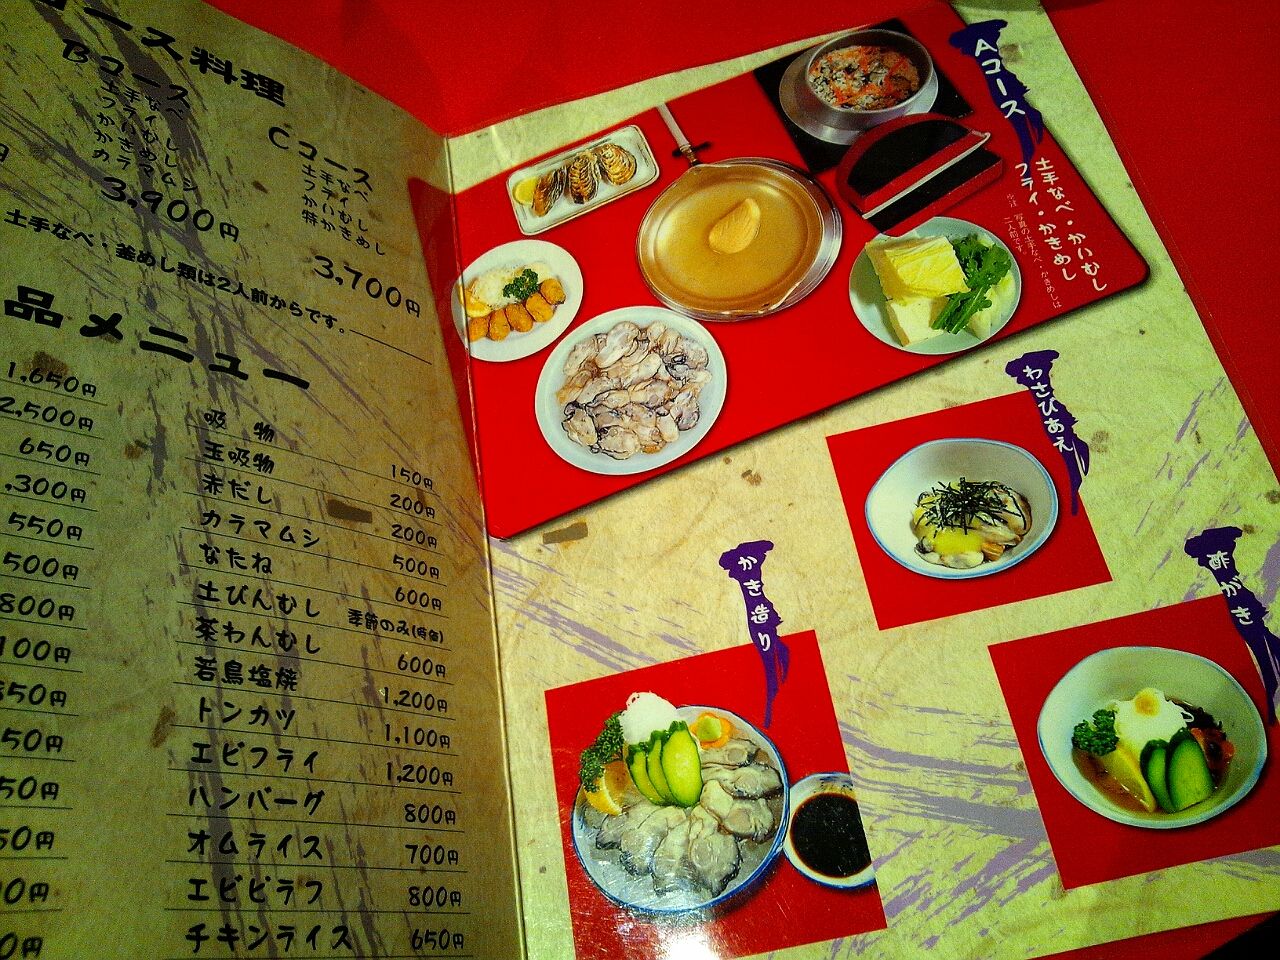 コース料理
Bコース
土手なべ
フライ
かいむし
かきめし
カラマムシ
3,900円
Cコース
土手なべ
フライ
かいむし
特かきめし
3,700円
円
土手なべ・釜めし類は2人前からです。
品メニュー
1,650円
2,500円
650円
,300円
550円
500円
800円
100円
50円
50円
50円
50円
0円
0円
吸物 150円
玉吸物 200円
赤だし 200円
カラマムシ 500円
なたね 600円
土びんむし 季節のみ(時価)
茶わんむし 600円
若鳥塩焼 1,200円
トンカツ 1,100円
エビフライ 1,200円
ハンバーグ 800円
オムライス 700円
エビピラフ 800円
チキンライス 650円
Aコース
土手なべ・かいむし
フライ・かきめし
写真の土手なべ・かきめしは
二人前です。
わさびあえ
かき造り
酢がき